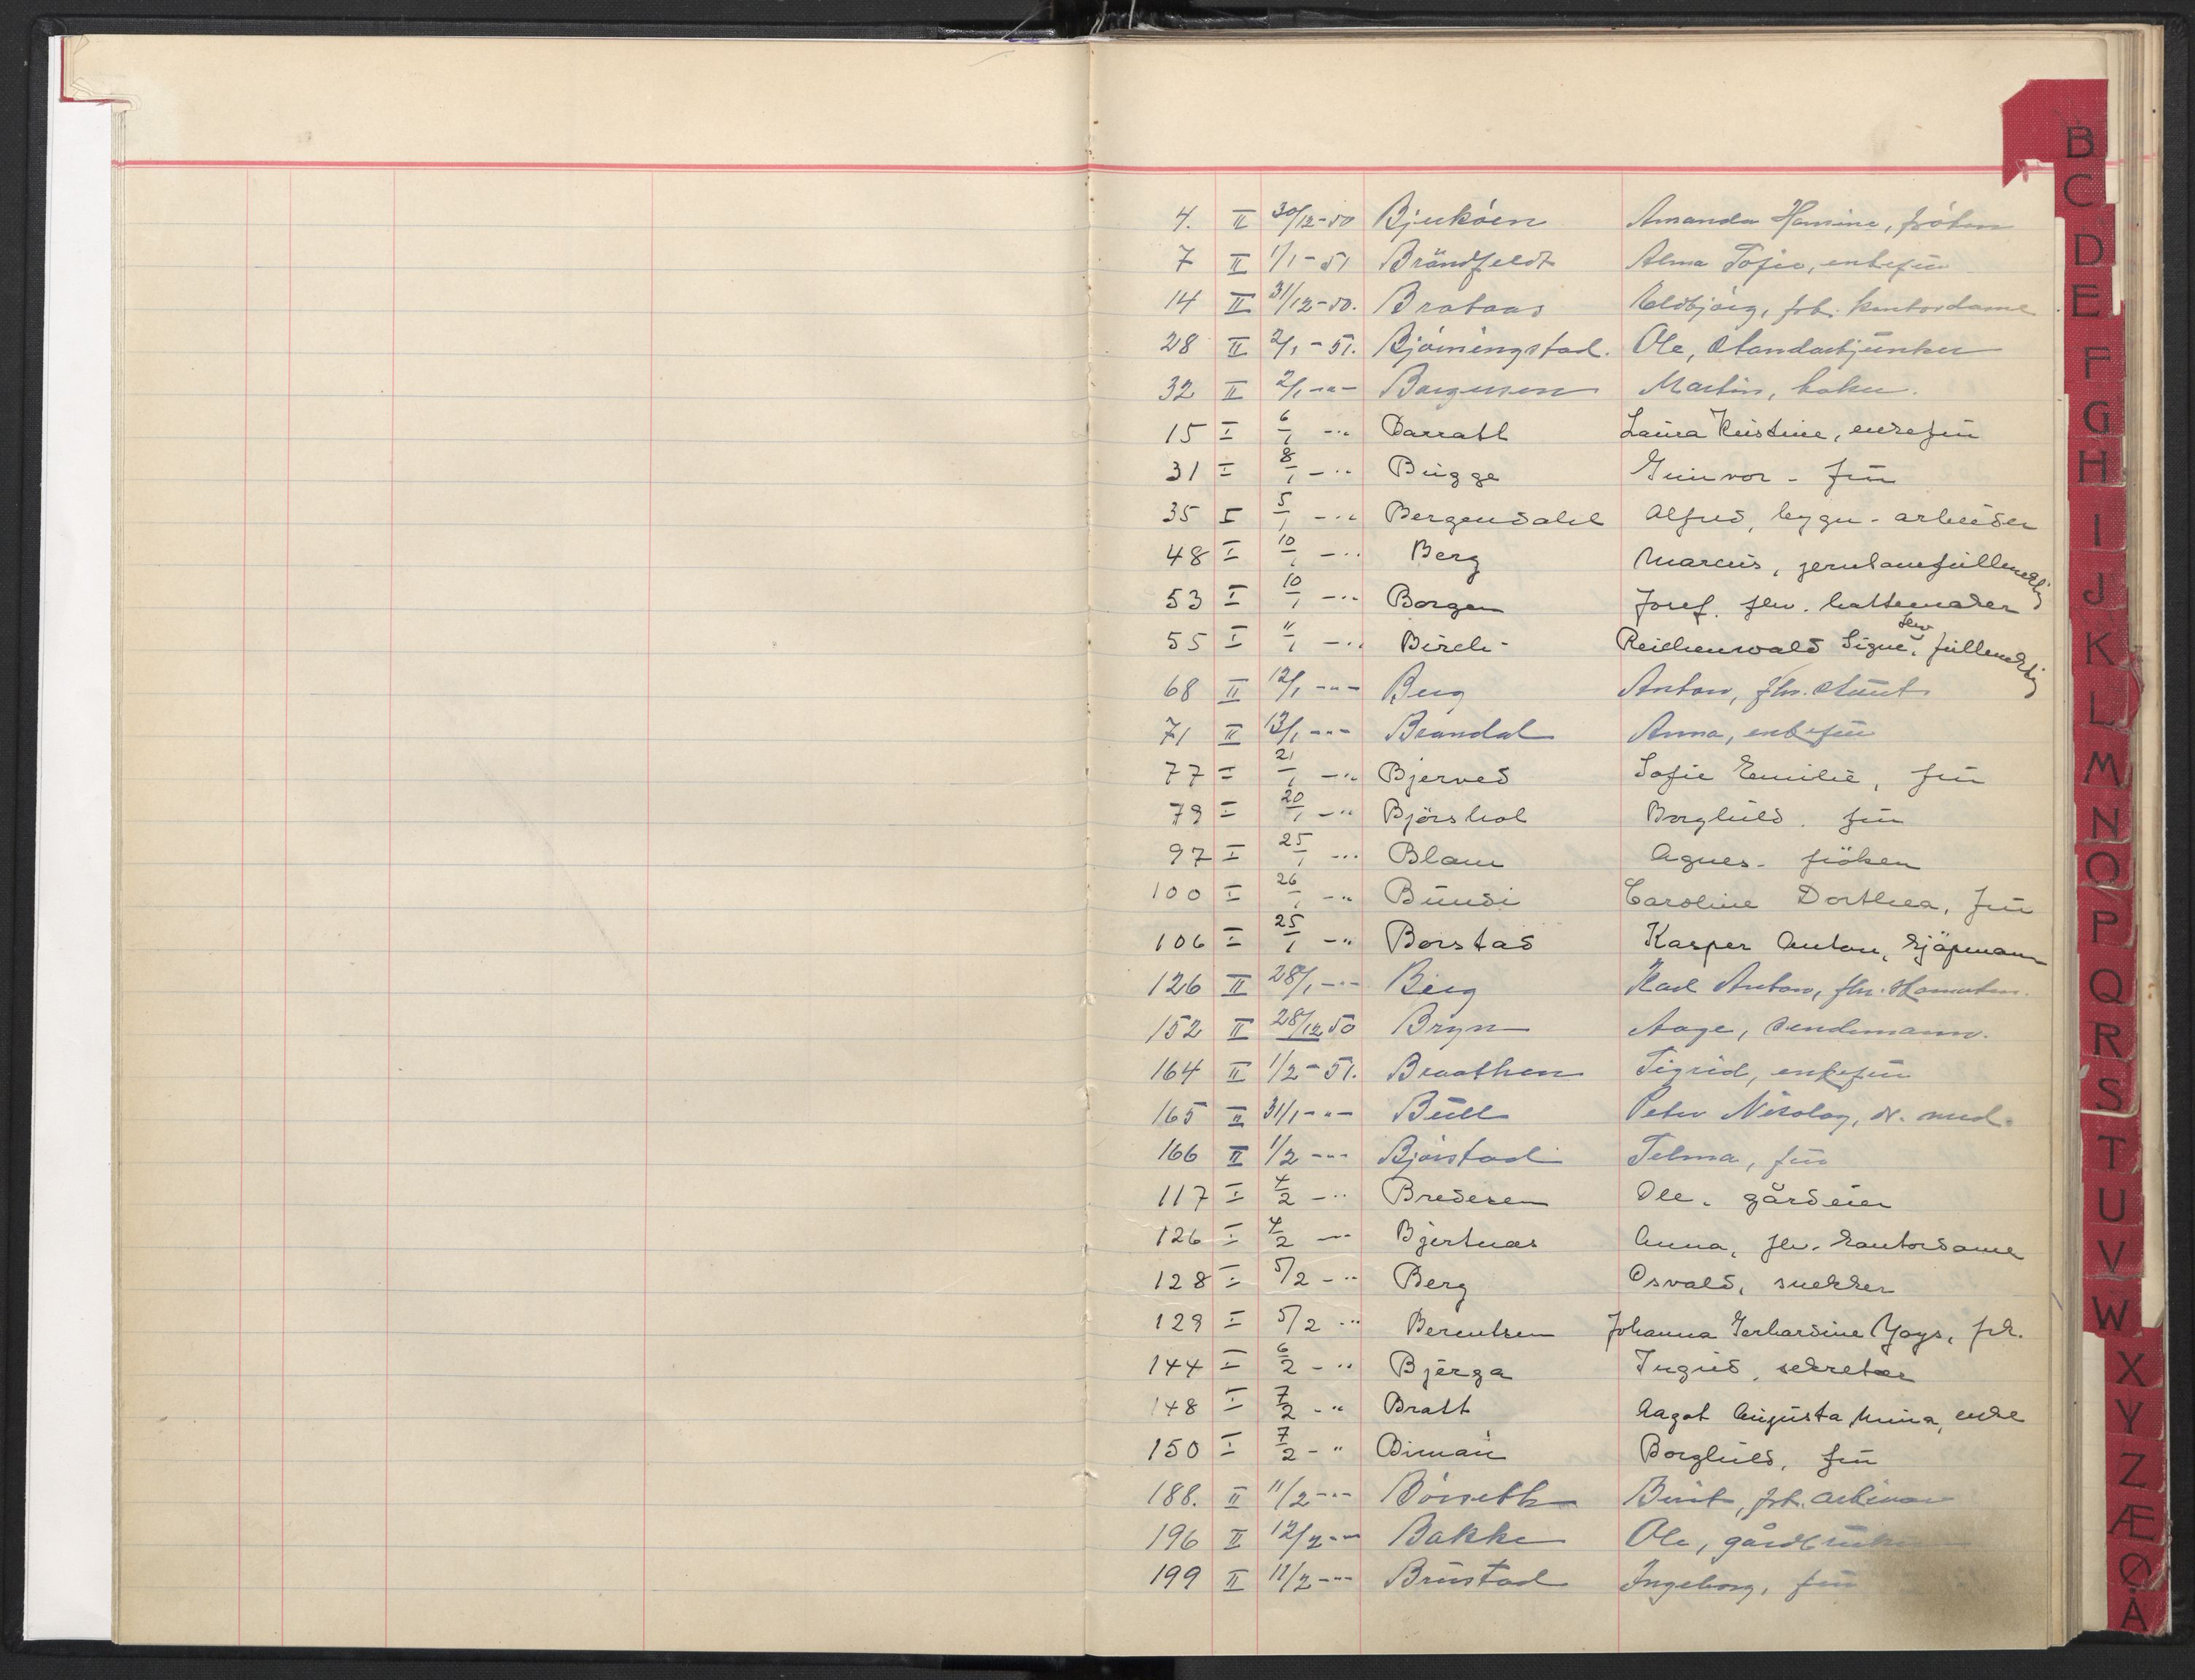 4. II 30/12-50 Bjerkøen Amanda Hansine, frøken
7 II 1/1-51 Brändfeldt Alma Sofie, enkefrü
14 II 31/12-50. Brataas Oldbjørg, frk. kontordame
28 II 2/1-51. Bjørningstad. Ole, Standartjünker
32 II 2/1 -"- Borgersen Martin, baker.
15 I 6/1 -" Barratt Laura Kristine, enkefrü
31 I 8/1 -" Bügge Günvor - frü
35 I 5/1 -" Bergendahl Alfred, bygn-arbeider
48 I 10/1 -" Berg Marcus, jernbanefüllmektig
53 I 10/1 -" Borgen Josef. fhv. hattemaker
55 I 11/1 -" Birch- Reichenwald Signe, fhv füllmektig
68 II 12/1 -"- Berg Anton, fhv.
71 II 13/1 -"- Brandal Anna, enkefrü
77 I 21/1 -" Bjerved Sofie Emilie, frü
79 I 20/1 -" Bjørshol Borghild. frü
97 I 25/1 -" Blam Agnes- frøken
100 I 26/1 -" Bündi Caroline Dorthea, frü
106 I 25/1 -" Borstad Kasper Anton, kjøpmann
126 II 28/1 -"- Berg Karl Anton, fhv.
152 II 28/12 50 Bryn Aage, Sendemann.
164 II 1/2-51. Braathen Sigrid, enkefrü
165 II 31/1 -"- Büll Peter Nikolay, dr. med.
166 II 1/2 -"- Bjørstad Telma, frü
117 I 4/2 -" Bredesen Ole. gårdeier
126 I 4/2 -" Bjertnæs Anna, fhv. kontordame
128 I 5/2 -" Berg Osvald, snekker
129 I 5/2 -" Berentsen Johanna Gerhardine Yays, frk.
144 I 6/2 -" Bjerga Ingrid, sekretær
148 I 7/2 -" Bratt Aagot Augusta Mina, enke
150 I 7/2 -" Biman Borghild, frü
188. II 11/2 -"- Børseth Berit, frk. arkivar
196 II 12/2 -"- Bakke Ole, gårdbrüker
199 II 11/2 -"- Brüstad Ingeborg, frü
B
C
D
E
F
G
H
I
J
K
L
M
N
O
P
Q
R
S
T
U
V
W
X
Y
Z
Æ
Ø
Å